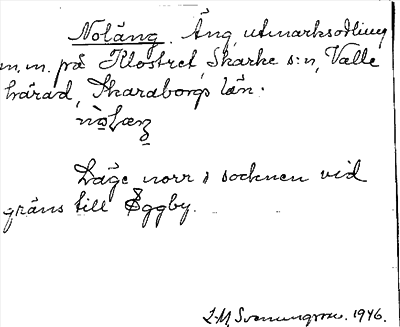 Noläng. Äng, utmarksodling
m.m. på Klostret, Skarke s:n, Valle
härad, Skaraborgs län.
Läge norr i socknen vid
gräns till Eggby.
S.M. Svenungsson. 1946.